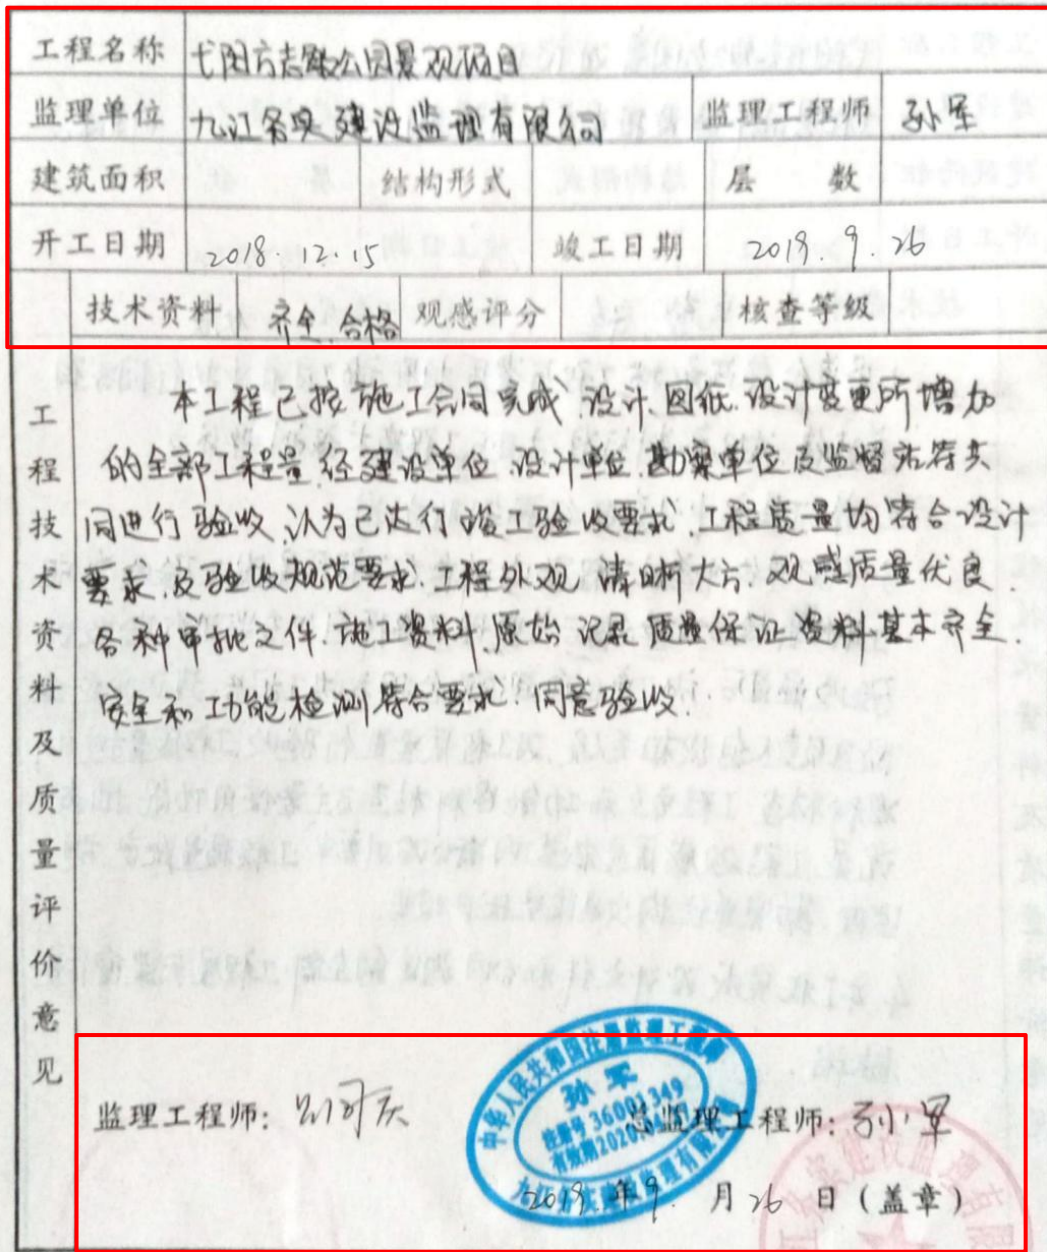 工程名称 弋阳方志敏公园景观项目
监理单位 九江务实建设监理有限公司 监理工程师 孙军
建筑面积 结构形式 层 数
开工日期 2018.12.15 竣工日期 2019.9.26
技术资料 齐全、合格 观感评分 核查等级
工程技术资料及质量评价意见
本工程已按施工合同完成、设计、图纸、设计变更所增加
的全部工程量,经建设单位、设计单位、勘察单位及监督站等共
同进行验收,认为已达行竣工验收要求,工程质量均符合设计
要求,及验收规范要求,工程外观清晰大方,观感质量优良.
各种审批文件,施工资料,原始记录,质量保证资料基本齐全.
安全和功能检测符合要求,同意验收.
监理工程师: 总监理工程师:孙军
中华人民共和国注册监理工程师
孙军
注册号 36001349
有效期2020
2019 年 9. 月 26 日(盖章)
实建设监理有限